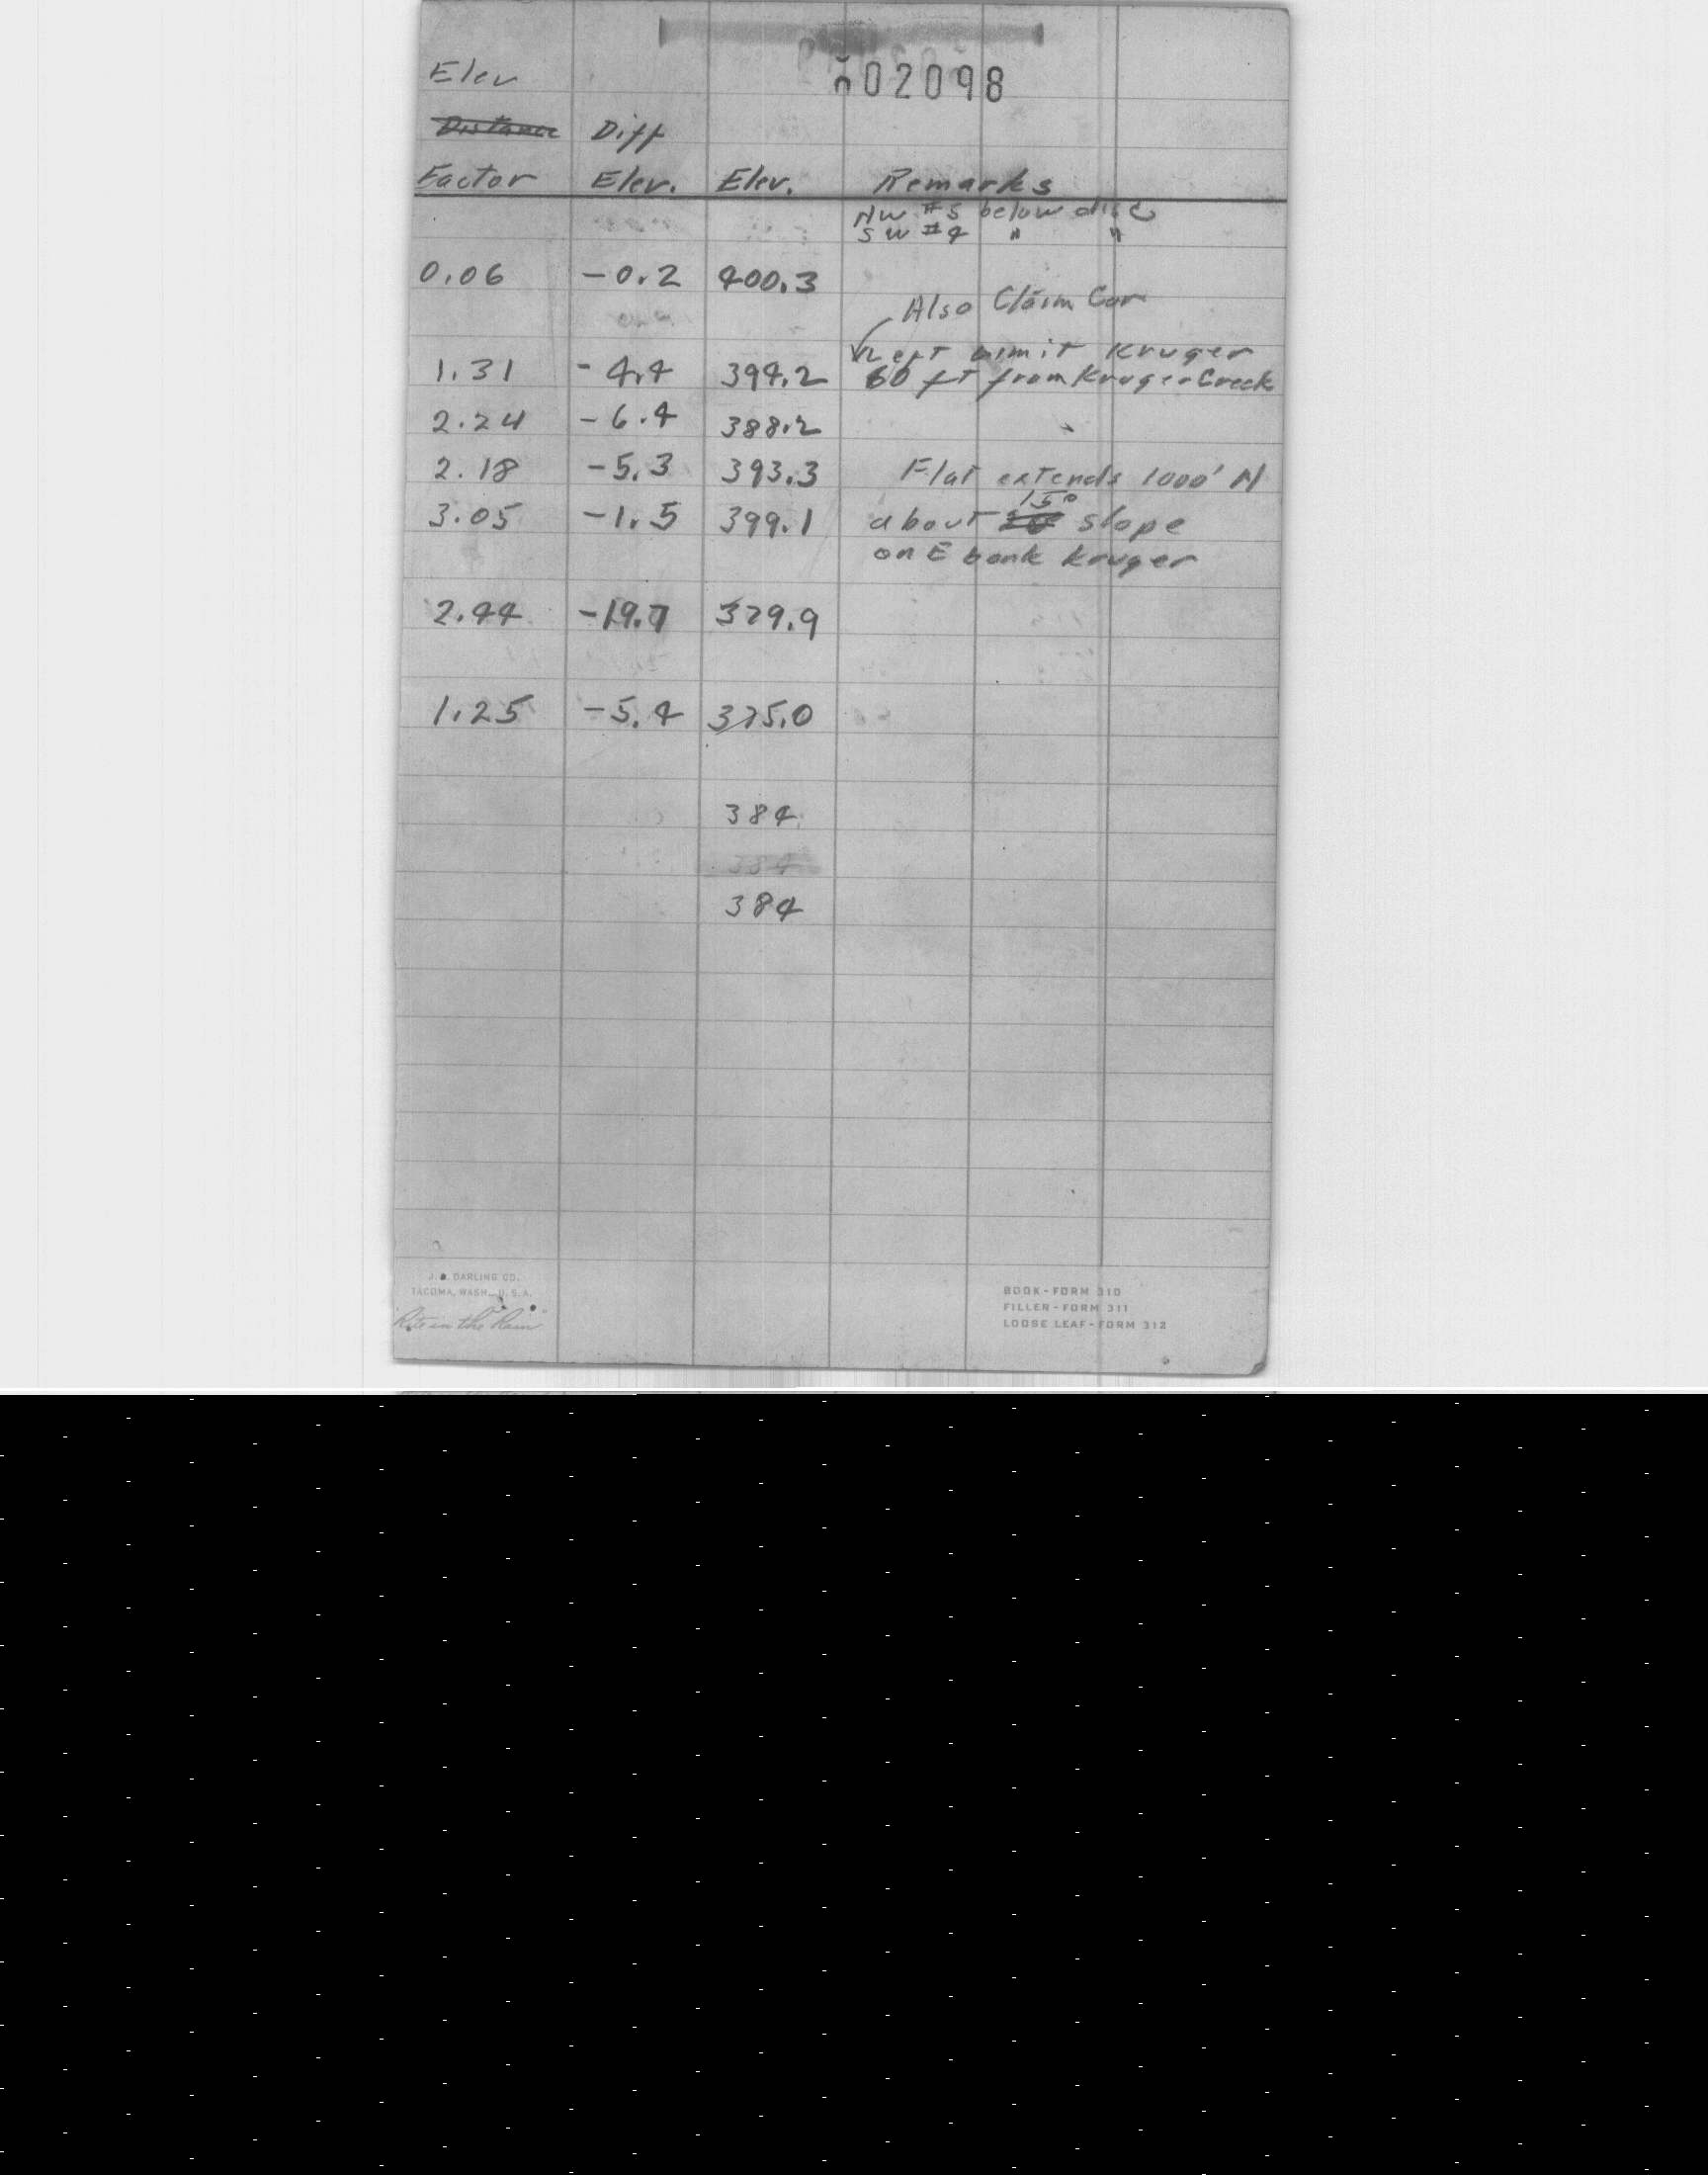 002098
Elev
Distance Diff
Factor Elev. Elev. Remarks
NW #5 below disc
SW #4 " "
0.06 -0.2 400.3
Also Claim Cor
Left Limit Kruger
1.31 -4.4 394.2 60 ft from Kruger Creek
2.24 -6.4 388.2
2.18 -5.3 393.3 Flat extends 1000' N
15°
3.05 -1.5 399.1 about slope
on E bank Kruger
2.44 -19.7 379.9
1.25 -5.4 375.0
384
384
384
J. DARLING CO.
TACOMA, WASH., U.S.A.
"Rite in the Rain"
BOOK-FORM 310
FILLER-FORM 311
LOOSE LEAF-FORM 312